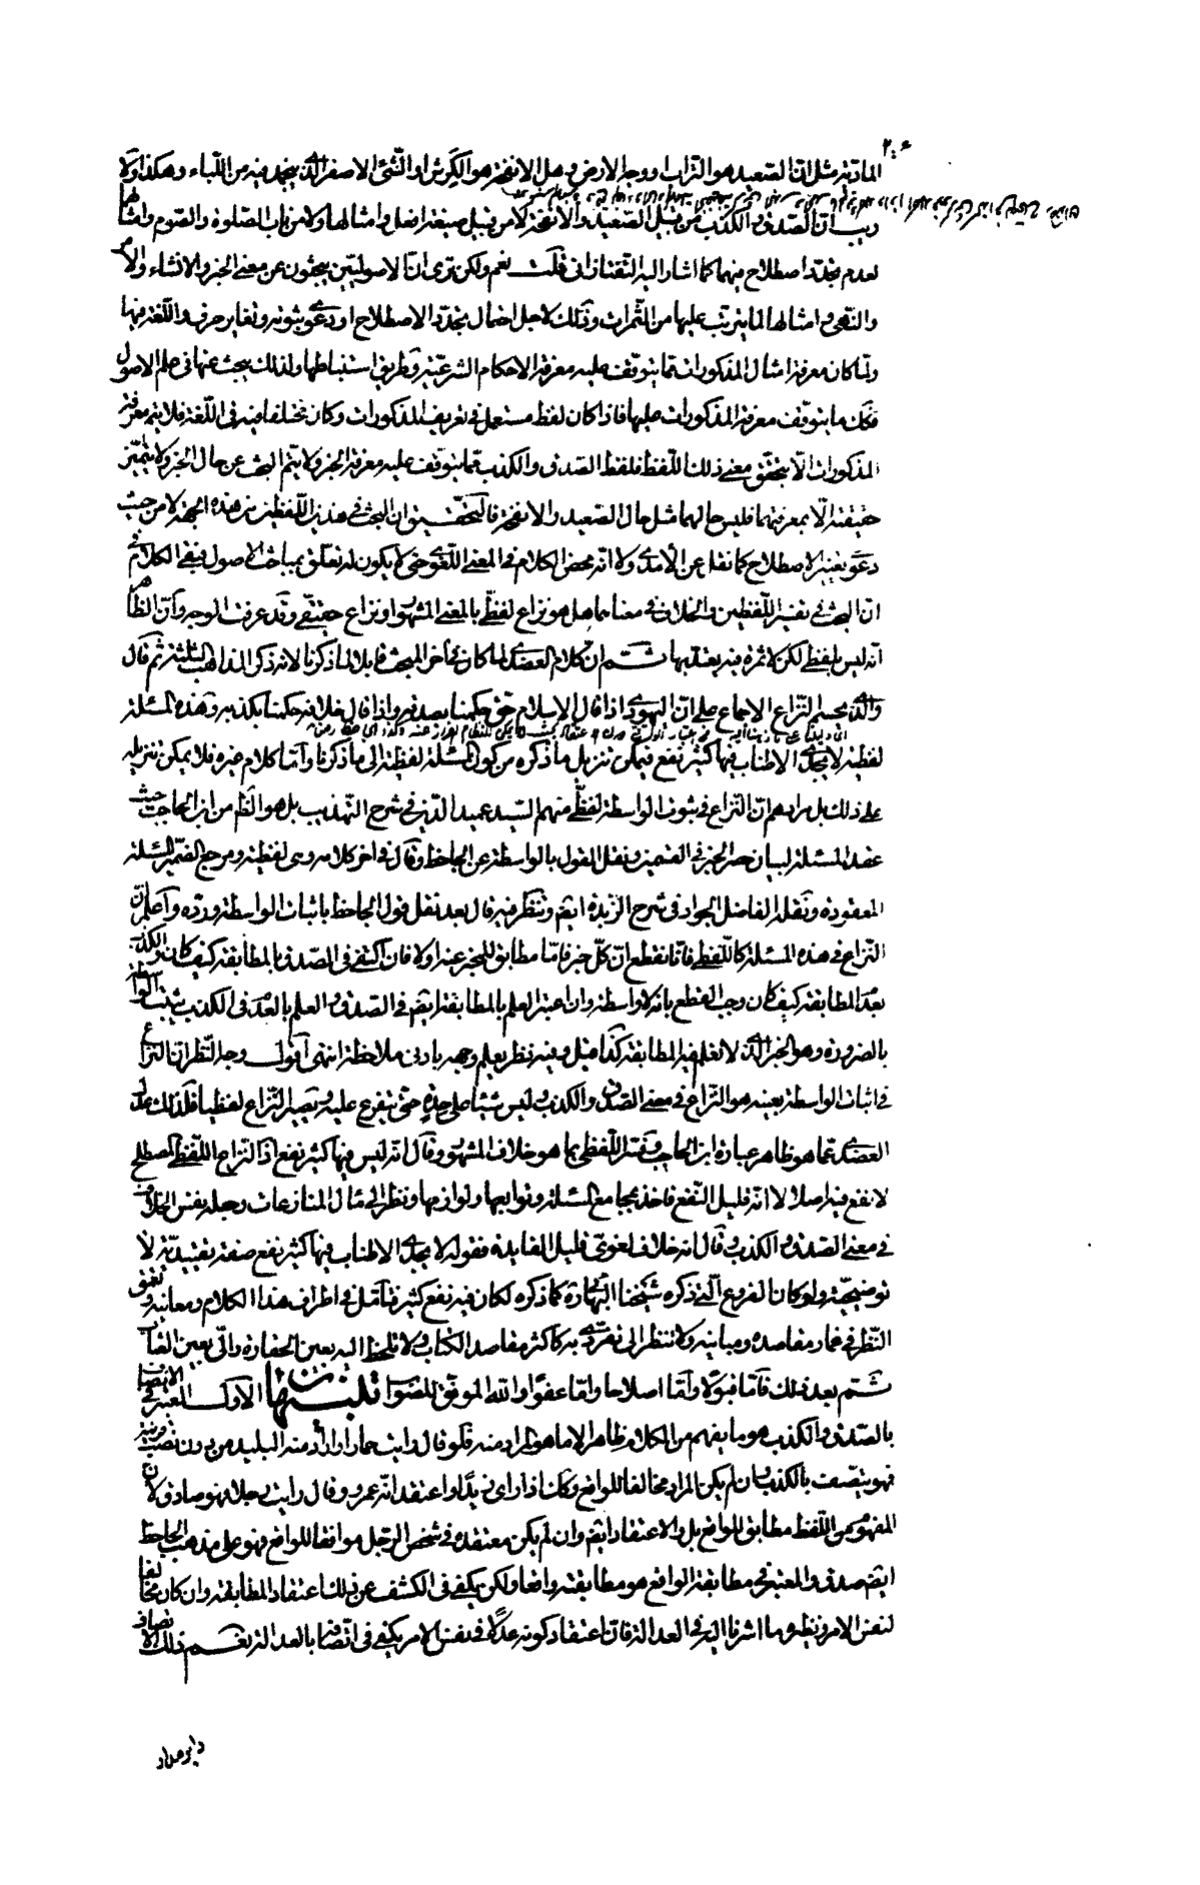 ٢٠٤
المادّية مثل انّ الصّعيد هو التراب او وجه الارض وهل الانفحة هو الكرش او الشّئ الاصفر الّذى ينجمد فيه من اللّباء وهكذا ولا
ريب انّ الصّدق والكذب من قبيل الصّعيد والانفحة لا من قبيل صيغة افعل وامثالها ولا من باب الصّلوة والصّوم وامثالها
لعدم تجدّد اصطلاح فيهما كما اشار اليه التفتازانى قلت نعم ولكن ترى انّ الاصوليّين يبحثون عن معنى الخبر والانشاء والامر
والنّهى وامثالها لما يترتّب عليها من الثّمرات وذلك لاجل احتمال تجدّد الاصطلاح او دعوى ثبوته وتغاير عرف واللّغة فيها
ولمّا كان معرفة امثال المذكورات ممّا يتوقّف عليه معرفة الاحكام الشّرعيّة وطريق استنباطها ولذلك يبحث عنها فى علم الاصول
فكك ما يتوقّف معرفة المذكورات عليها فاذا كان لفظ مستعمل فى تعريف المذكورات وكان مختلفا فيه فى اللّغة فلا يتم معرفة
المذكورات الّا بتحقّق معنى ذلك اللّفظ فلفظ الصّدق والكذب ممّا يتوقّف عليه معرفة الخبر ولا يتمّ البحث عن حال الخبر ولا يتميّز
حقيقته الّا بمعرفتهما فليس حالهما مثل حال الصّعيد والانفحة فالتّحقيق ان البحث فى هذين اللّفظين من هذه الجهة لا من حيث
دعوى تغيير الاصطلاح كما نقل عن الآمدى ولا انّه محض الكلام فى المعنى اللّغوى حتى لا يكون له تعلّق بمباحث الاصول فبقى الكلام فى
انّ البحث فى تفسير اللّفظين والخلاف فى معناهما هل هو نزاع لفظىّ بالمعنى المشهور او نزاع حقيقى وقد عرفت الوجه وانّ الظاهر
انّه ليس بلفظى لكن لا ثمرة فيه يعتدّ بها ثمّ انّ كلام العضدى لما كان فى آخر المبحث قابلا لما ذكرنا لانه ذكر المذاهب الثلثة ثم قال
والّذى يحسم النّزاع الاجماع على انّ اليهودى اذا قال الاسلام حقّ حكمنا بصدقه واذا قال خلافه حكمنا بكذبه وهذه المسئلة
لفظيّة لا يجدى الاطناب فيها كثير نفع فيمكن تنزيل ما ذكره من كون المسئلة لفظيّة الى ما ذكرنا وامّا كلام غيره فلا يمكن تنزيله
على ذلك بل مرادهم انّ النّزاع فى ثبوت الواسطة لفظىّ منهم السّيد عميد الدّين فى شرح التّهذيب بل هو الظّ من ابن الحاجب حيث
عقد المسئلة لبيان حصر الخبر فى القسمين ونقل القول بالواسطة عن الجاحظ وقال فى آخر كلامه وهى لفظيّة ومرجع الضّمير المسئلة
المعقودة ونقله الفاضل الجواد فى شرح الزّبدة ايضا ونظر فيه قال بعد نقل قول الجاحظ باثبات الواسطة وردّه واعلم انّ
النّزاع فى هذه المسئلة كاللّفظى فانّا نقطع انّ كلّ خبر فامّا مطابق للمخبر عنه او لا فان اكتفى فى الصّدق بالمطابقة كيف كان والكذب
بعدم المطابقة كيف كان وجب القطع بانّه لا واسطة وان اعتبر العلم بالمطابقة ايضا فى الصّدق والعلم بالعدم فى الكذب يثبت الواسطة
بالضرورة وهو الخبر الّذى لا نعلم فيه المطابقة كذا قيل وفيه نظر يعلم وجهه بادنى ملاحظة انتهى اقول وجه النّظر انّ النّزاع
فى اثبات الواسطة بعينه هو النّزاع فى معنى الصّدق والكذب وليس شيئا على حدة حتّى يتفرع عليه ويصير النّزاع لفظيا فلذلك عدل
العضدى عمّا هو ظاهر عبارة ابن الحاجب وفسّر اللّفظى بما هو خلاف المشهور وقال انّه ليس فيها كثير نفع اذ النزاع اللّفظى المصطلح
لا نفع فيه اصلا لا انّه قليل النّفع فاخذ بمجامع المسئلة وتوابعها ولوازمها ونظر الى مثال المنازعات وجعله نفس الخلاف
فى معنى الصّدق والكذب وقال انّه خلاف لغوىّ قليل الفايدة فقوله لا يجدى الاطناب فيها كثير نفع صفة تقييديّة لا
توضيحيّة ولو كان الفروع الّتى ذكره شيخنا البهائى ره كما ذكره لكان فيه نفع كثير فتأمل فى اطراف هذا الكلام ومعانيه وتعمّق
النّظر فى غمار مقاصده ومبانيه ولا تنظر الى تفرّدى به كاكثر مقاصد الكتاب ولا تلحظ اليه بعين الحقارة والى بعين العتاب
ثمّ بعد ذلك فامّا قبولا وامّا اصلاحا وامّا عفوًا والله الموفق للصّواب تنبيهان الاوّل المعتبر فى الاتصاف
بالصّدق والكذب هو ما يفهم من الكلام ظاهرا لا ما هو المراد منه فلو قال رايت حمارا واراد منه البليد من دون نصب قرينة
فهو يتّصف بالكذب وان لم يكن المراد مخالفا للواقع وكذا اذا راى زيدًا واعتقد انّه عمرو وقال رايت رجلا فهو صادق لانّ
المفهوم من اللّفظ مطابق للواقع بل والاعتقاد ايضا وان لم يكن معتقده فى شخص الرّجل موافقا للواقع فهو على مذهب الجاحظ
ايضا صدق والمعتبر فى مطابقة الواقع هو مطابقته واقعا ولكن يكفى فى الكشف عن ذلك اعتقاد المطابقة وان كان مخالفا
لنفس الامر ونظيره ما اشرنا اليه فى العدالة فانّ اعتقاد كونه عدلا فى نفس الامر يكفى فى اتّصافه بالعدالة نعم ذلك الاتصاف